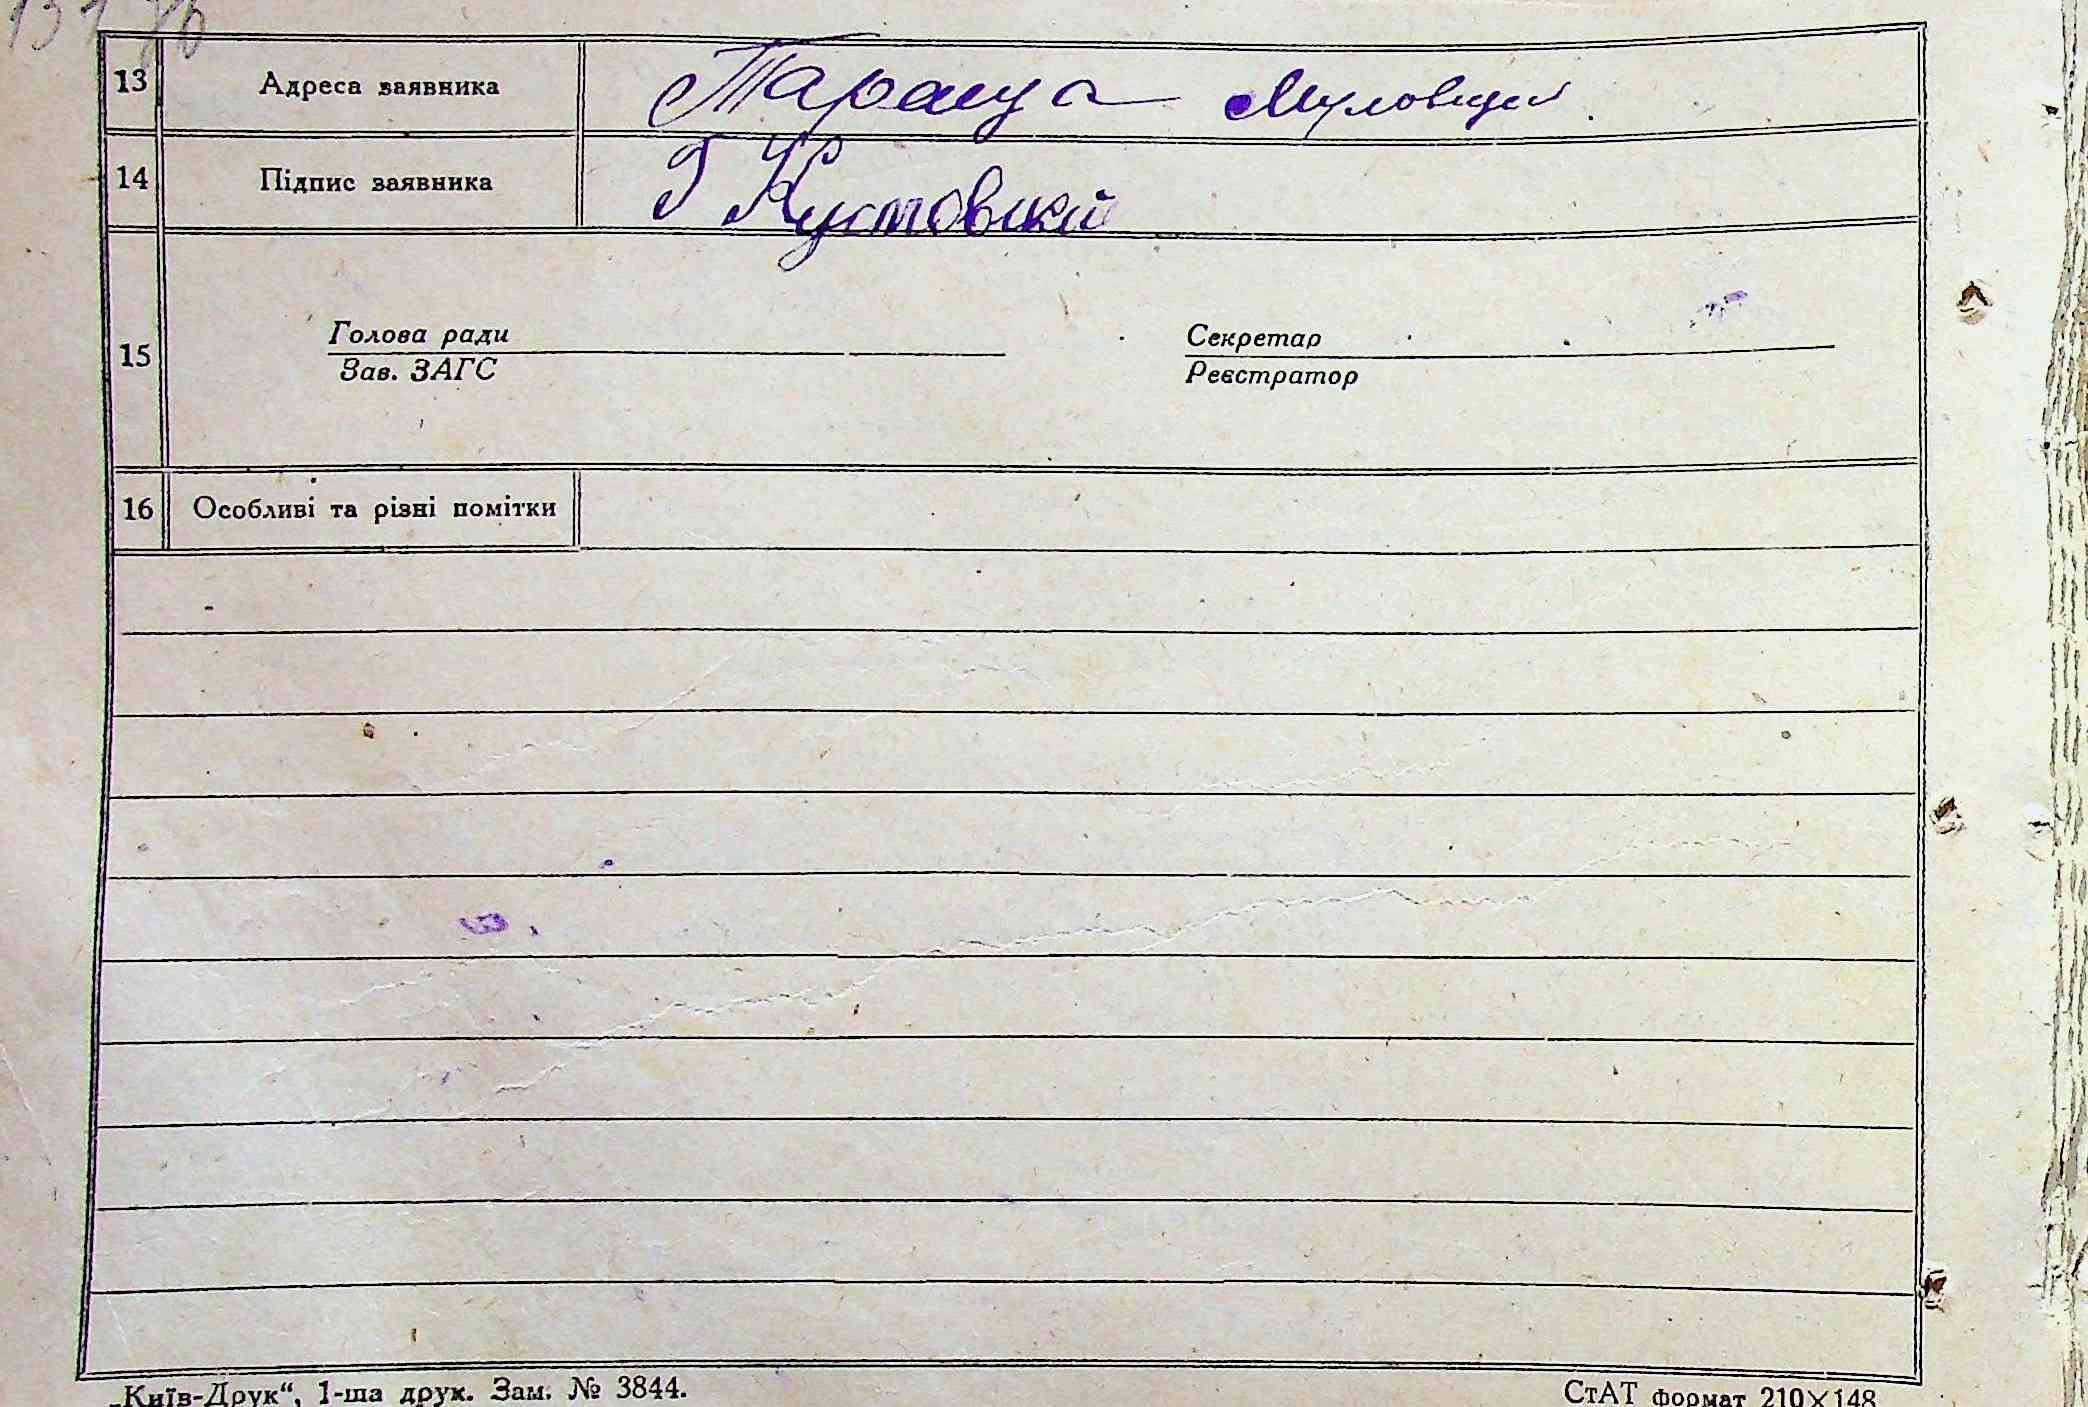 13 Адреса заявника Тараща
14 Підпис заявника Г Кустовскій
15 Голова ради Секретар
Зав. ЗАГС Реєстратор
16 Особливі та різні помітки
„Київ-Друк“, 1-ша друк. Зам. № 3844. СтАТ формат 210×148